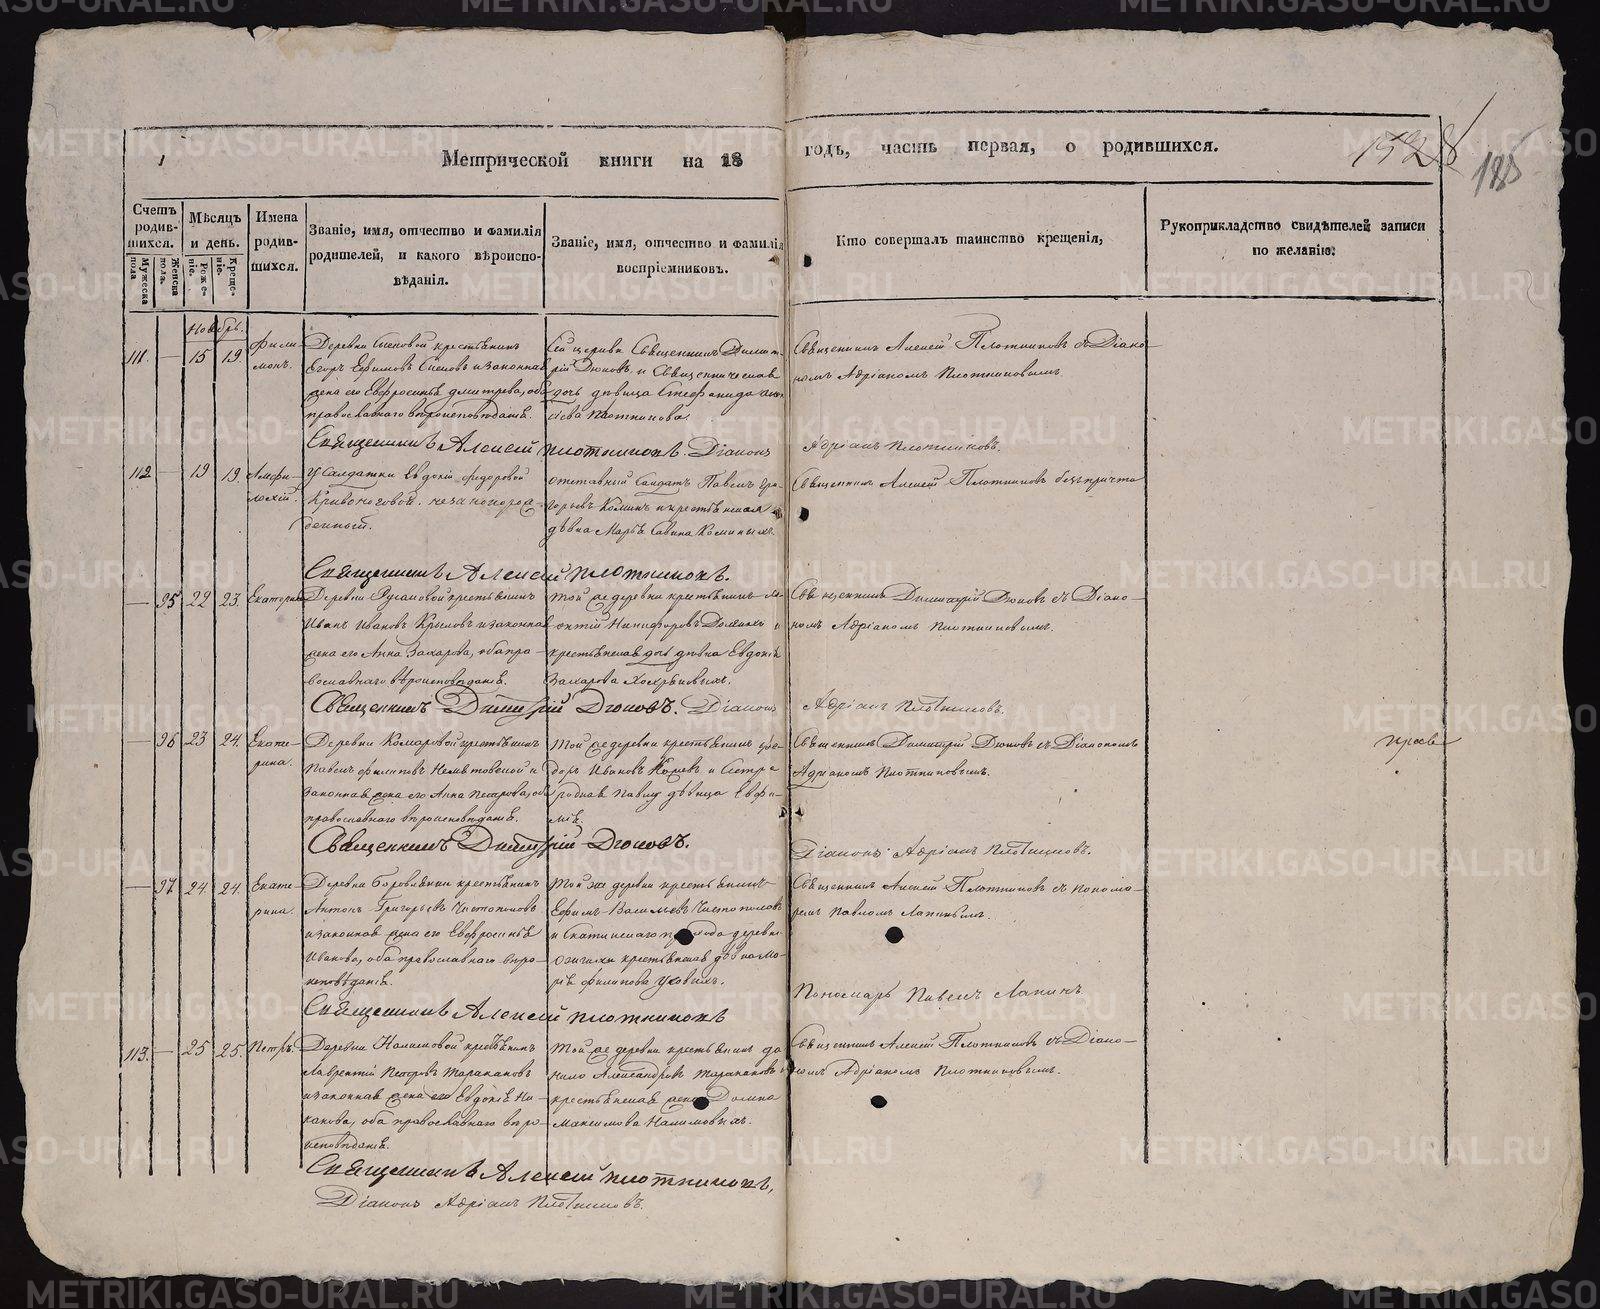 Метрической книги на 18 годъ, часть первая, о родившихся.
1528
185
Счетъ родив-шихся.
Мужеска пола
Женска пола.
Мѣсяцъ и день.
Рожде-ніе.
Креще-ніе.
Имена родив-шихся.
Званіе, имя, отчество и фамилія родителей, и какого вѣроиспо-вѣданія.
Званіе, имя, отчество и фамилія воспріемниковъ.
Кто совершалъ таинство крещенія,
Рукоприкладство свидѣтелей записи по желанію.
Ноябрь.
111. — 15 19
Фили-
монъ.
Деревни крестьянинъ
Егоръ Ефимовъ и законная
жена его Евфросинья Дмитрева, оба
православнаго вѣроисповѣданія.
Сей церкви Священникъ Димит-
рій Дюковъ и Священническая
дочь дѣвица Стефанида Алек-
сіева Плотникова.
Священникъ Алексей Плотниковъ съ Діако-
номъ Адріаномъ Плотниковымъ.
Священникъ Алексей Плотниковъ. Діаконъ Адріанъ Плотниковъ.
112 — 19 19
Амфи-
лохій.
У Салдатки Евдокіи Федоровой
Кривоноговой незаконорож-
денный.
отставный Салдатъ Павелъ Гри-
горьевъ Коминъ и крестьянская
дѣвка Марья Савина Коминыхъ.
Священникъ Алексей Плотниковъ безъ причта
Священникъ Алексей Плотниковъ.
— 95 22 23.
Екатерина
Деревни крестьянинъ
Иванъ Ивановъ Крыловъ и законная
жена его Анна Захарова, оба пра-
вославнаго вѣроисповѣданія.
Той же деревни крестьянинъ
Никифоровъ и
крестьянская дочь дѣвка Евдокія
Захарова
Священникъ Димитрій Дюковъ съ Діако-
номъ Адріаномъ Плотниковымъ.
Священникъ Димитрій Дюковъ. Діаконъ Адріанъ Плотниковъ.
— 96 23 24.
Екате-
рина.
Деревни Комаровой крестьянинъ
Павелъ Филиповъ и
законная жена его Анна Петрова, оба
православнаго вѣроисповѣданія.
Той же деревни крестьянинъ Фе-
доръ Ивановъ и Сестра
родная Павлу дѣвица Евфи-
мія.
Священникъ Димитрій Дюковъ съ Діакономъ
Адріаномъ Плотниковымъ.
Священникъ Димитрій Дюковъ.
Діаконъ Адріанъ Плотниковъ.
— 97 24. 24.
Екате-
рина.
Деревни Боровлянки крестьянинъ
Антонъ Григорьевъ Чистополовъ
и законная жена его Евфросинья
Иванова, оба православнаго вѣро-
исповѣданія.
Той же деревни крестьянинъ
Ефимъ Васильевъ Чистополовъ
и Скатинскаго прихода деревни
крестьянская дѣвка Ма-
рія Филипова
Священникъ Алексей Плотниковъ съ Понома-
ремъ Павломъ Лапинымъ.
Пономарь Павелъ Лапинъ.
Священникъ Алексей Плотниковъ
113. — 25 25.
Петръ.
Деревни Налимовой крестьянинъ
Лаврентій Петровъ Таракановъ
и законная жена его Евдокія Ни-
канова, оба православнаго вѣро-
исповѣданія.
Той же деревни крестьянинъ Да-
нило Александровъ Таракановъ и
крестьянская жена Домна
Максимова Налимовыхъ.
Священникъ Алексей Плотниковъ съ Діако-
номъ Адріаномъ Плотниковымъ.
Священникъ Алексей Плотниковъ,
Діаконъ Адріанъ Плотниковъ.
METRIKI.GASO-URAL.RU